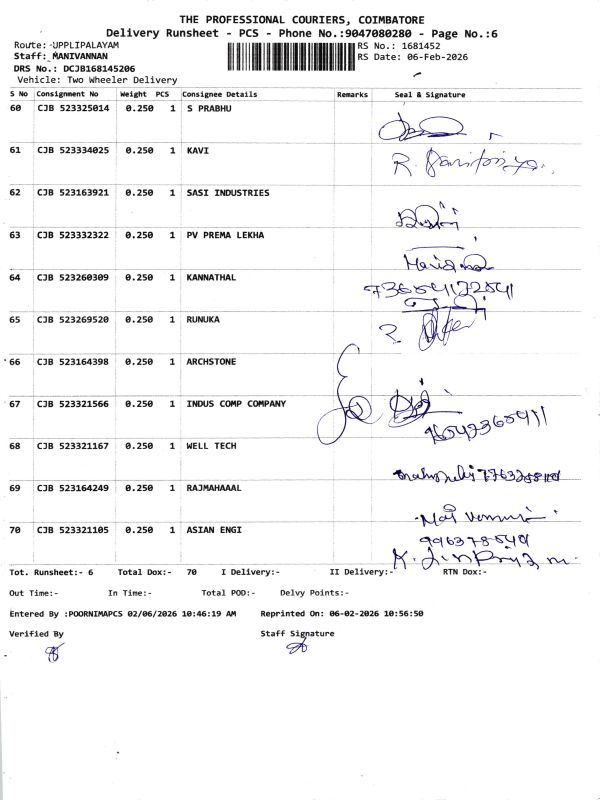 THE PROFESSIONAL COURIERS, COIMBATORE
Delivery Runsheet - PCS - Phone No.:9047080280 - Page No.:6
Route: UPPLIPALAYAM RS No.: 1681452
Staff: MANIVANNAN RS Date: 06-Feb-2026
DRS No.: DCJB168145206
Vehicle: Two Wheeler Delivery
S No Consignment No Weight PCS Consignee Details Remarks Seal & Signature
60 CJB 523325014 0.250 1 S PRABHU
61 CJB 523334025 0.250 1 KAVI
R.
62 CJB 523163921 0.250 1 SASI INDUSTRIES
63 CJB 523332322 0.250 1 PV PREMA LEKHA
64 CJB 523260309 0.250 1 KANNATHAL
65 CJB 523269520 0.250 1 RUNUKA
66 CJB 523164398 0.250 1 ARCHSTONE
67 CJB 523321566 0.250 1 INDUS COMP COMPANY
68 CJB 523321167 0.250 1 WELL TECH
69 CJB 523164249 0.250 1 RAJMAHAAAL
70 CJB 523321105 0.250 1 ASIAN ENGI
Tot. Runsheet:- 6 Total Dox:- 70 I Delivery:- II Delivery:- RTN Dox:-
Out Time:- In Time:- Total POD:- Delvy Points:-
Entered By :POORNIMAPCS 02/06/2026 10:46:19 AM Reprinted On: 06-02-2026 10:56:50
Verified By Staff Signature